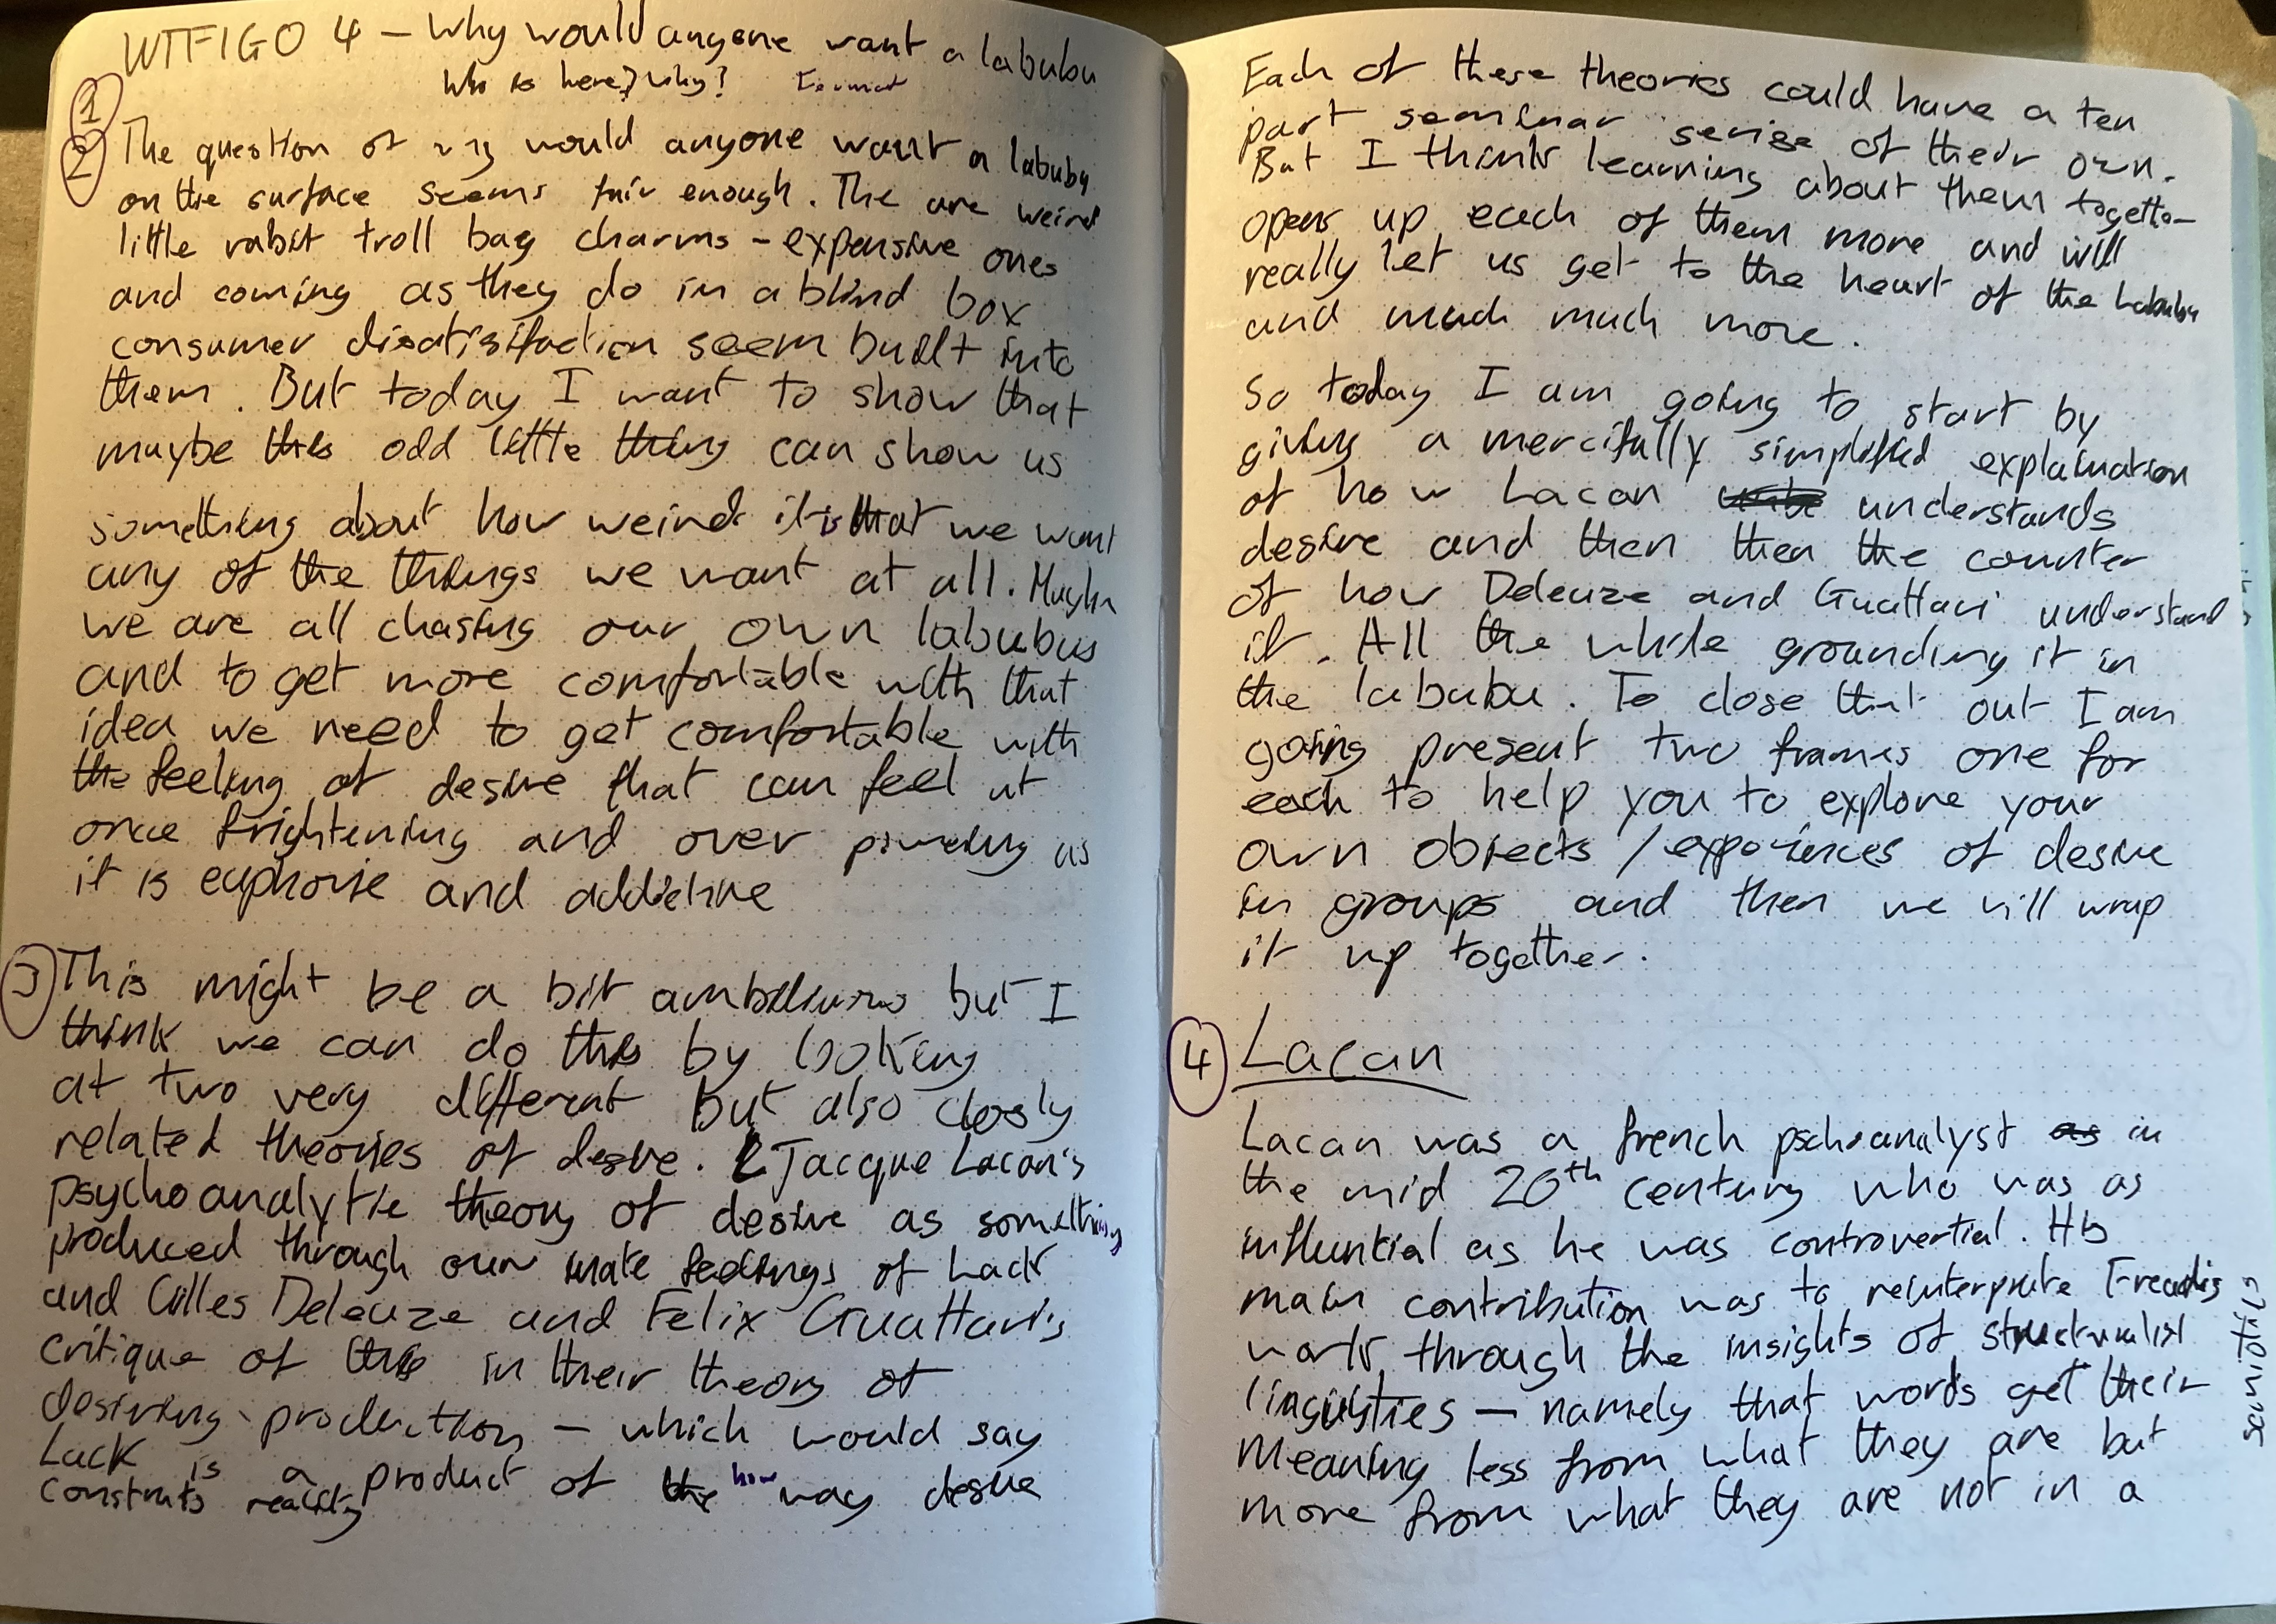 WTFIGO 4 – Why would anyone want a labubu
Who is here? Why? Format
1
2 The question of why would anyone want a labubu
on the surface seems fair enough. The are weird
little rabit troll bag charms – expensive ones
and coming as they do in a blind box
consumer disatisifaction seem built into
them. But today I want to show that
maybe this odd little thing can show us
something about how weird it is that we want
any of the things we want at all. Maybe
we are all chasing our own labubus
and to get more comfortable with that
idea we need to get comfortable with
the feeling of desire that can feel at
once frightening and over powering as
it is euphorie and addictive
3 This might be a bit ambitious but I
think we can do this by looking
at two very different but also closly
related theories of desire. Jacque Lacan's
psychoanalytic theory of desire as something
produced through our inate feelings of Lack
and Gilles Deleuze and Felix Guattari's
critique of this in their theory of
desiring-production – which would say
Lack is a product of the how way desire
construts reality
Each of these theories could have a ten
part seminar serise of their own.
But I think learning about them together
opens up each of them more and will
really let us get to the heart of the Labubu
and much much more.
So today I am going to start by
giving a mercifully simplified explaination
of how Lacan understands
desire and then then the counter
of how Deleuze and Guattari understand
it. All the while grounding it in
the labubu. To close that out I am
going present two frames one for
each to help you to explore your
own objects / experiences of desire
in groups and then we will wrap
it up together.
4 Lacan
Lacan was a french pschoanalyst as in
the mid 20th century who was as
influntial as he was controvertial. His
main contribution was to reinterprite Freuds
work through the insights of structuralist
linguistics – namely that words get their
meaning less from what they are but
more from what they are not in a
semiotics